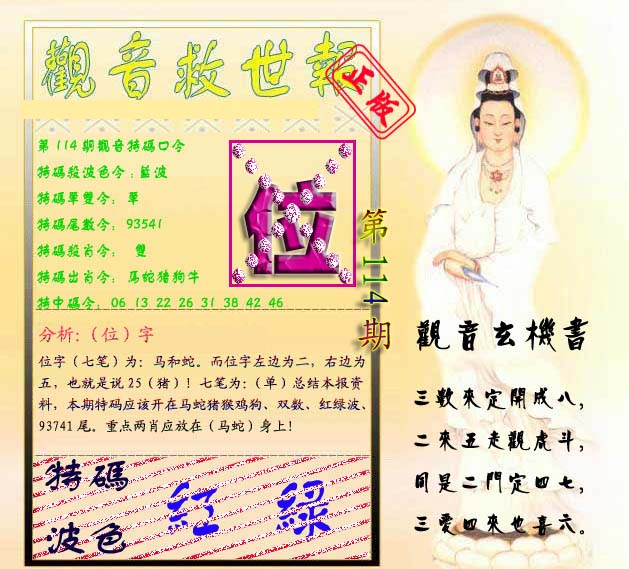 觀音救世報
正版
第114期觀音特碼口令
特碼殺波色令:藍波
特碼單雙令: 單
特碼尾數令: 93541
特碼殺肖令: 雙
特碼出肖令: 馬蛇猪狗牛
特中碼令: 06 13 22 26 31 38 42 46
位
第114期
分析:（位）字
位字（七笔）为：马和蛇。而位字左边为二，右边为
五，也就是说25（猪）！七笔为：（单）总结本报资
料，本期特码应该开在马蛇猪猴鸡狗、双数、红绿波、
93741尾。重点两肖应放在（马蛇）身上！
特碼
波色
紅 綠
觀音玄機書
三數來定開成八，
二來五走觀虎斗，
同是二門定四七，
三愛四來也喜六。